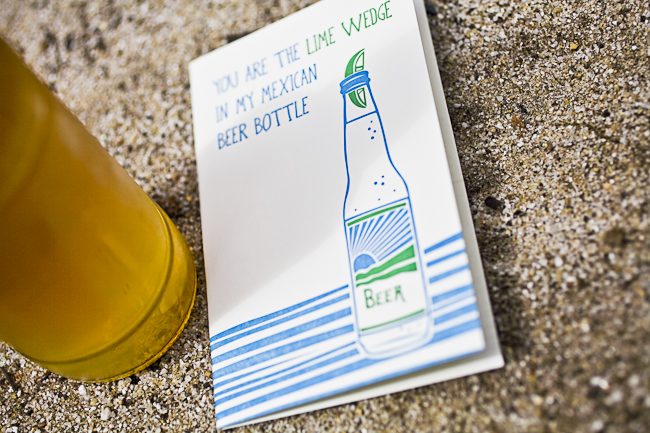 YOU ARE THE LIME WEDGE
IN MY MEXICAN
BEER BOTTLE
BEER